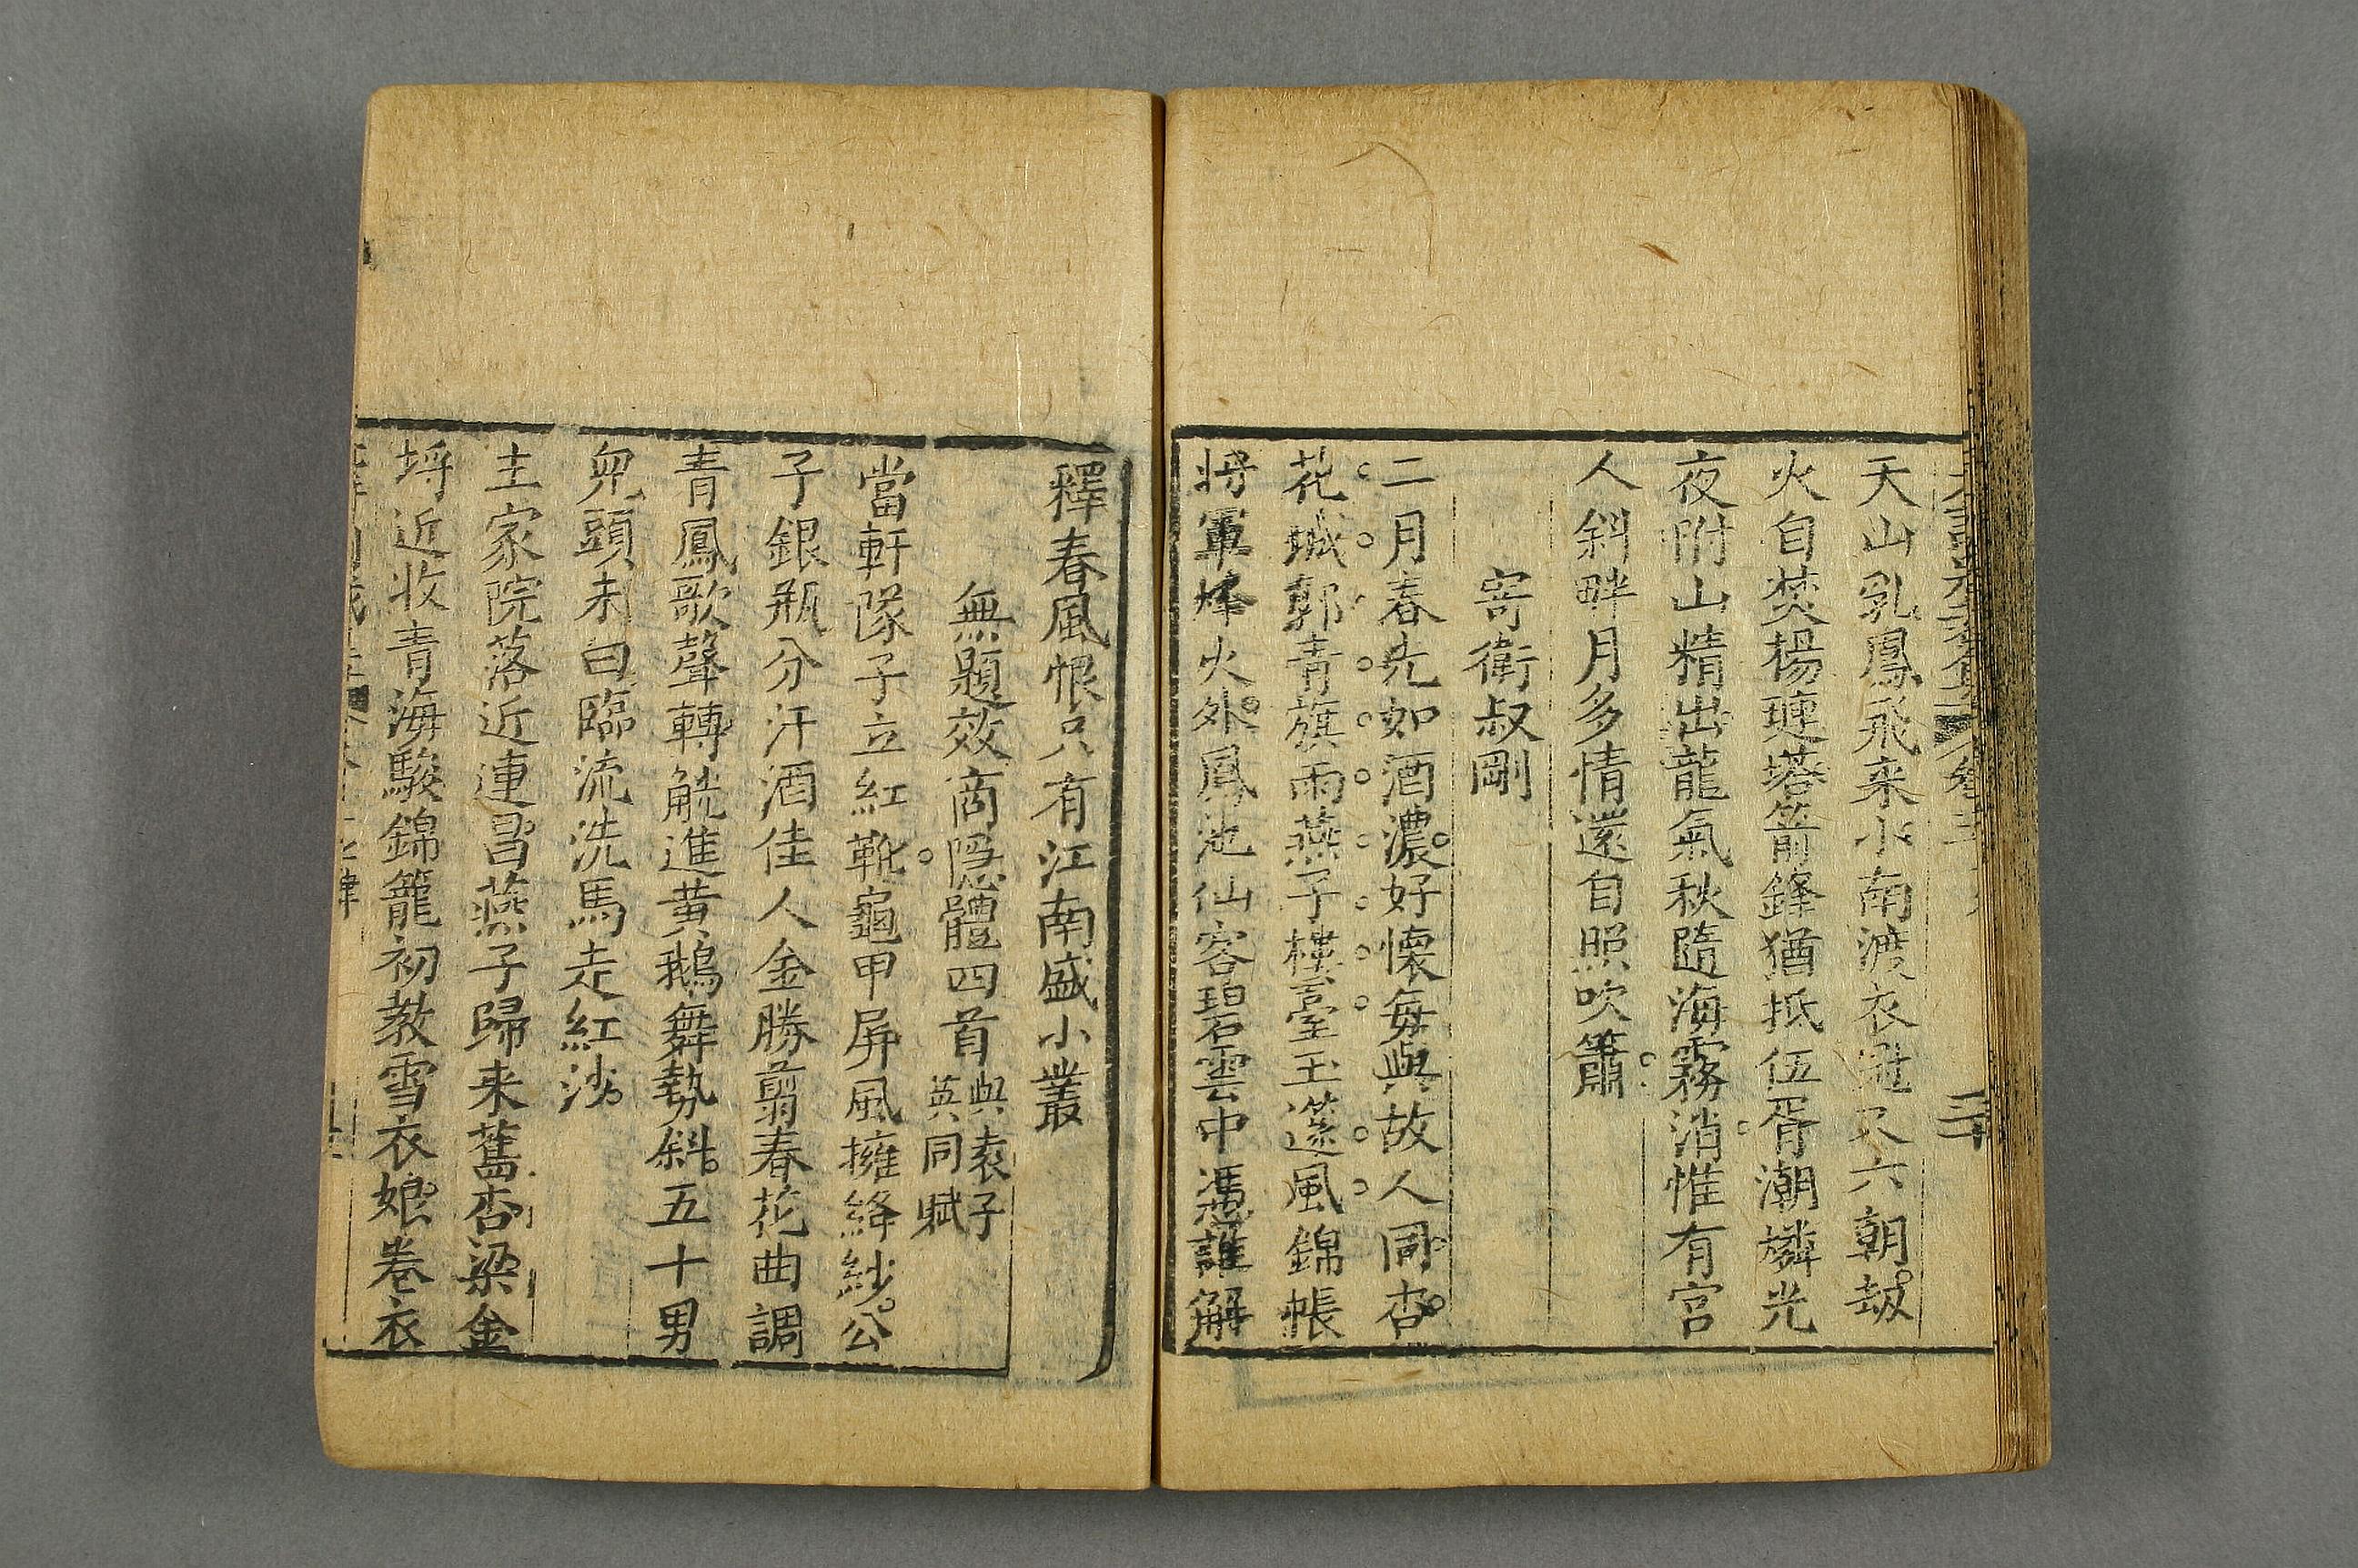 天山乳鳳飛来小南渡衣冠又六朝刼
火自焚楊璉塔箭鋒猶抵伍胥潮燐光
夜附山精出龍氣秋隨海霧消惟有宮
人斜畔月多情還自照吹簫
寄衛叔剛
二月春光如酒濃好懷每與故人同杏
花城郭青旗雨燕子樓臺玉篴風錦帳
将軍烽火外鳳池仙客碧雲中憑誰解
三十
釋春風恨只有江南盛小叢
無題效商隐體四首與袁子英同賦
當軒隊子立紅靴龜甲屏風擁絳紗公
子銀瓶分汗酒佳人金勝翦春花曲調
青鳳歌聲轉觥進黄鵝舞勢斜五十男
兒頭未白臨流洗馬走紅沙
主家院落近連昌燕子歸来舊杏梁金
埒近收青海駿錦籠初教雪衣娘卷衣